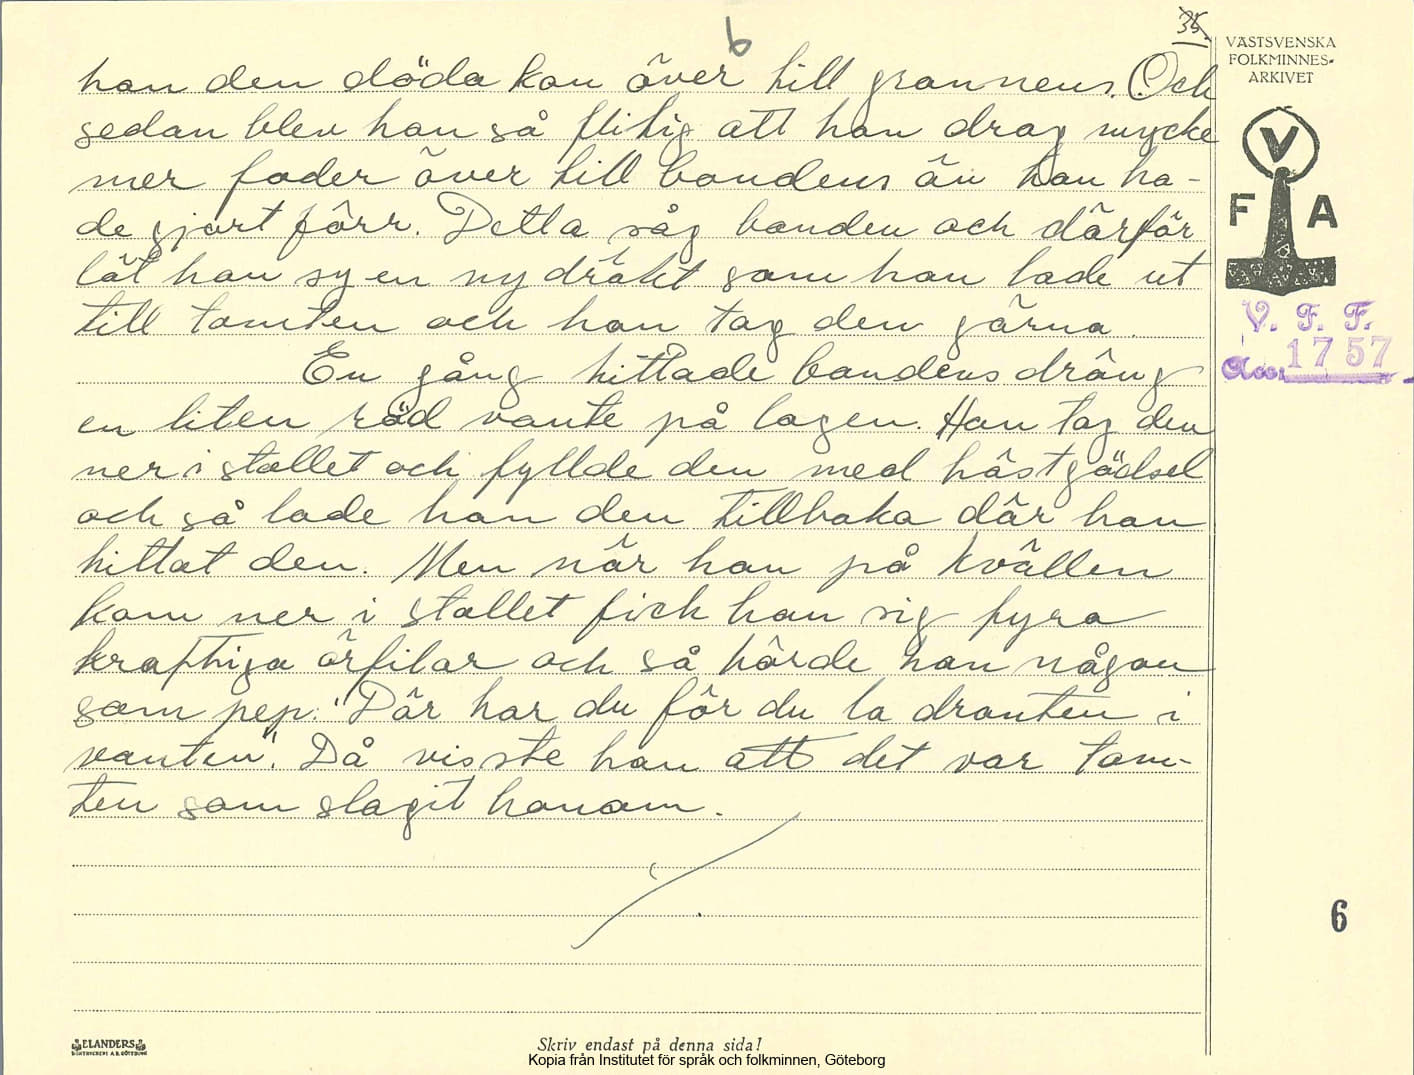 6
35.
han den döda kon över till grannens. Och
sedan blev han så flitig att han drog mycke
mer foder över till bondens än han ha-
de gjort förr. Detta såg bonden och därför
lät han sy en ny dräkt som han lade ut
till tomten och han tog den gärna.
En gång hittade bondens dräng
en liten röd vante på logen. Han tog den
ner i stallet och fyllde den med hästgödsel
och så lade han den tillbaka där han
hittat den. Men när han på kvällen
kom ner i stallet fick han sig fyra
kraftiga örfilar och så hörde han någon
som pep: "Där har du för du la dronten i
vanten". Då visste han att det var tom-
ten som slagit honom.
VÄSTSVENSKA
FOLKMINNES-
ARKIVET
V
F A
V. F. F.
Acc. 1757
6
ELANDERS
BOKTRYCKERI A.B. GÖTEBORG
Skriv endast på denna sida!
Kopia från Institutet för språk och folkminnen, Göteborg